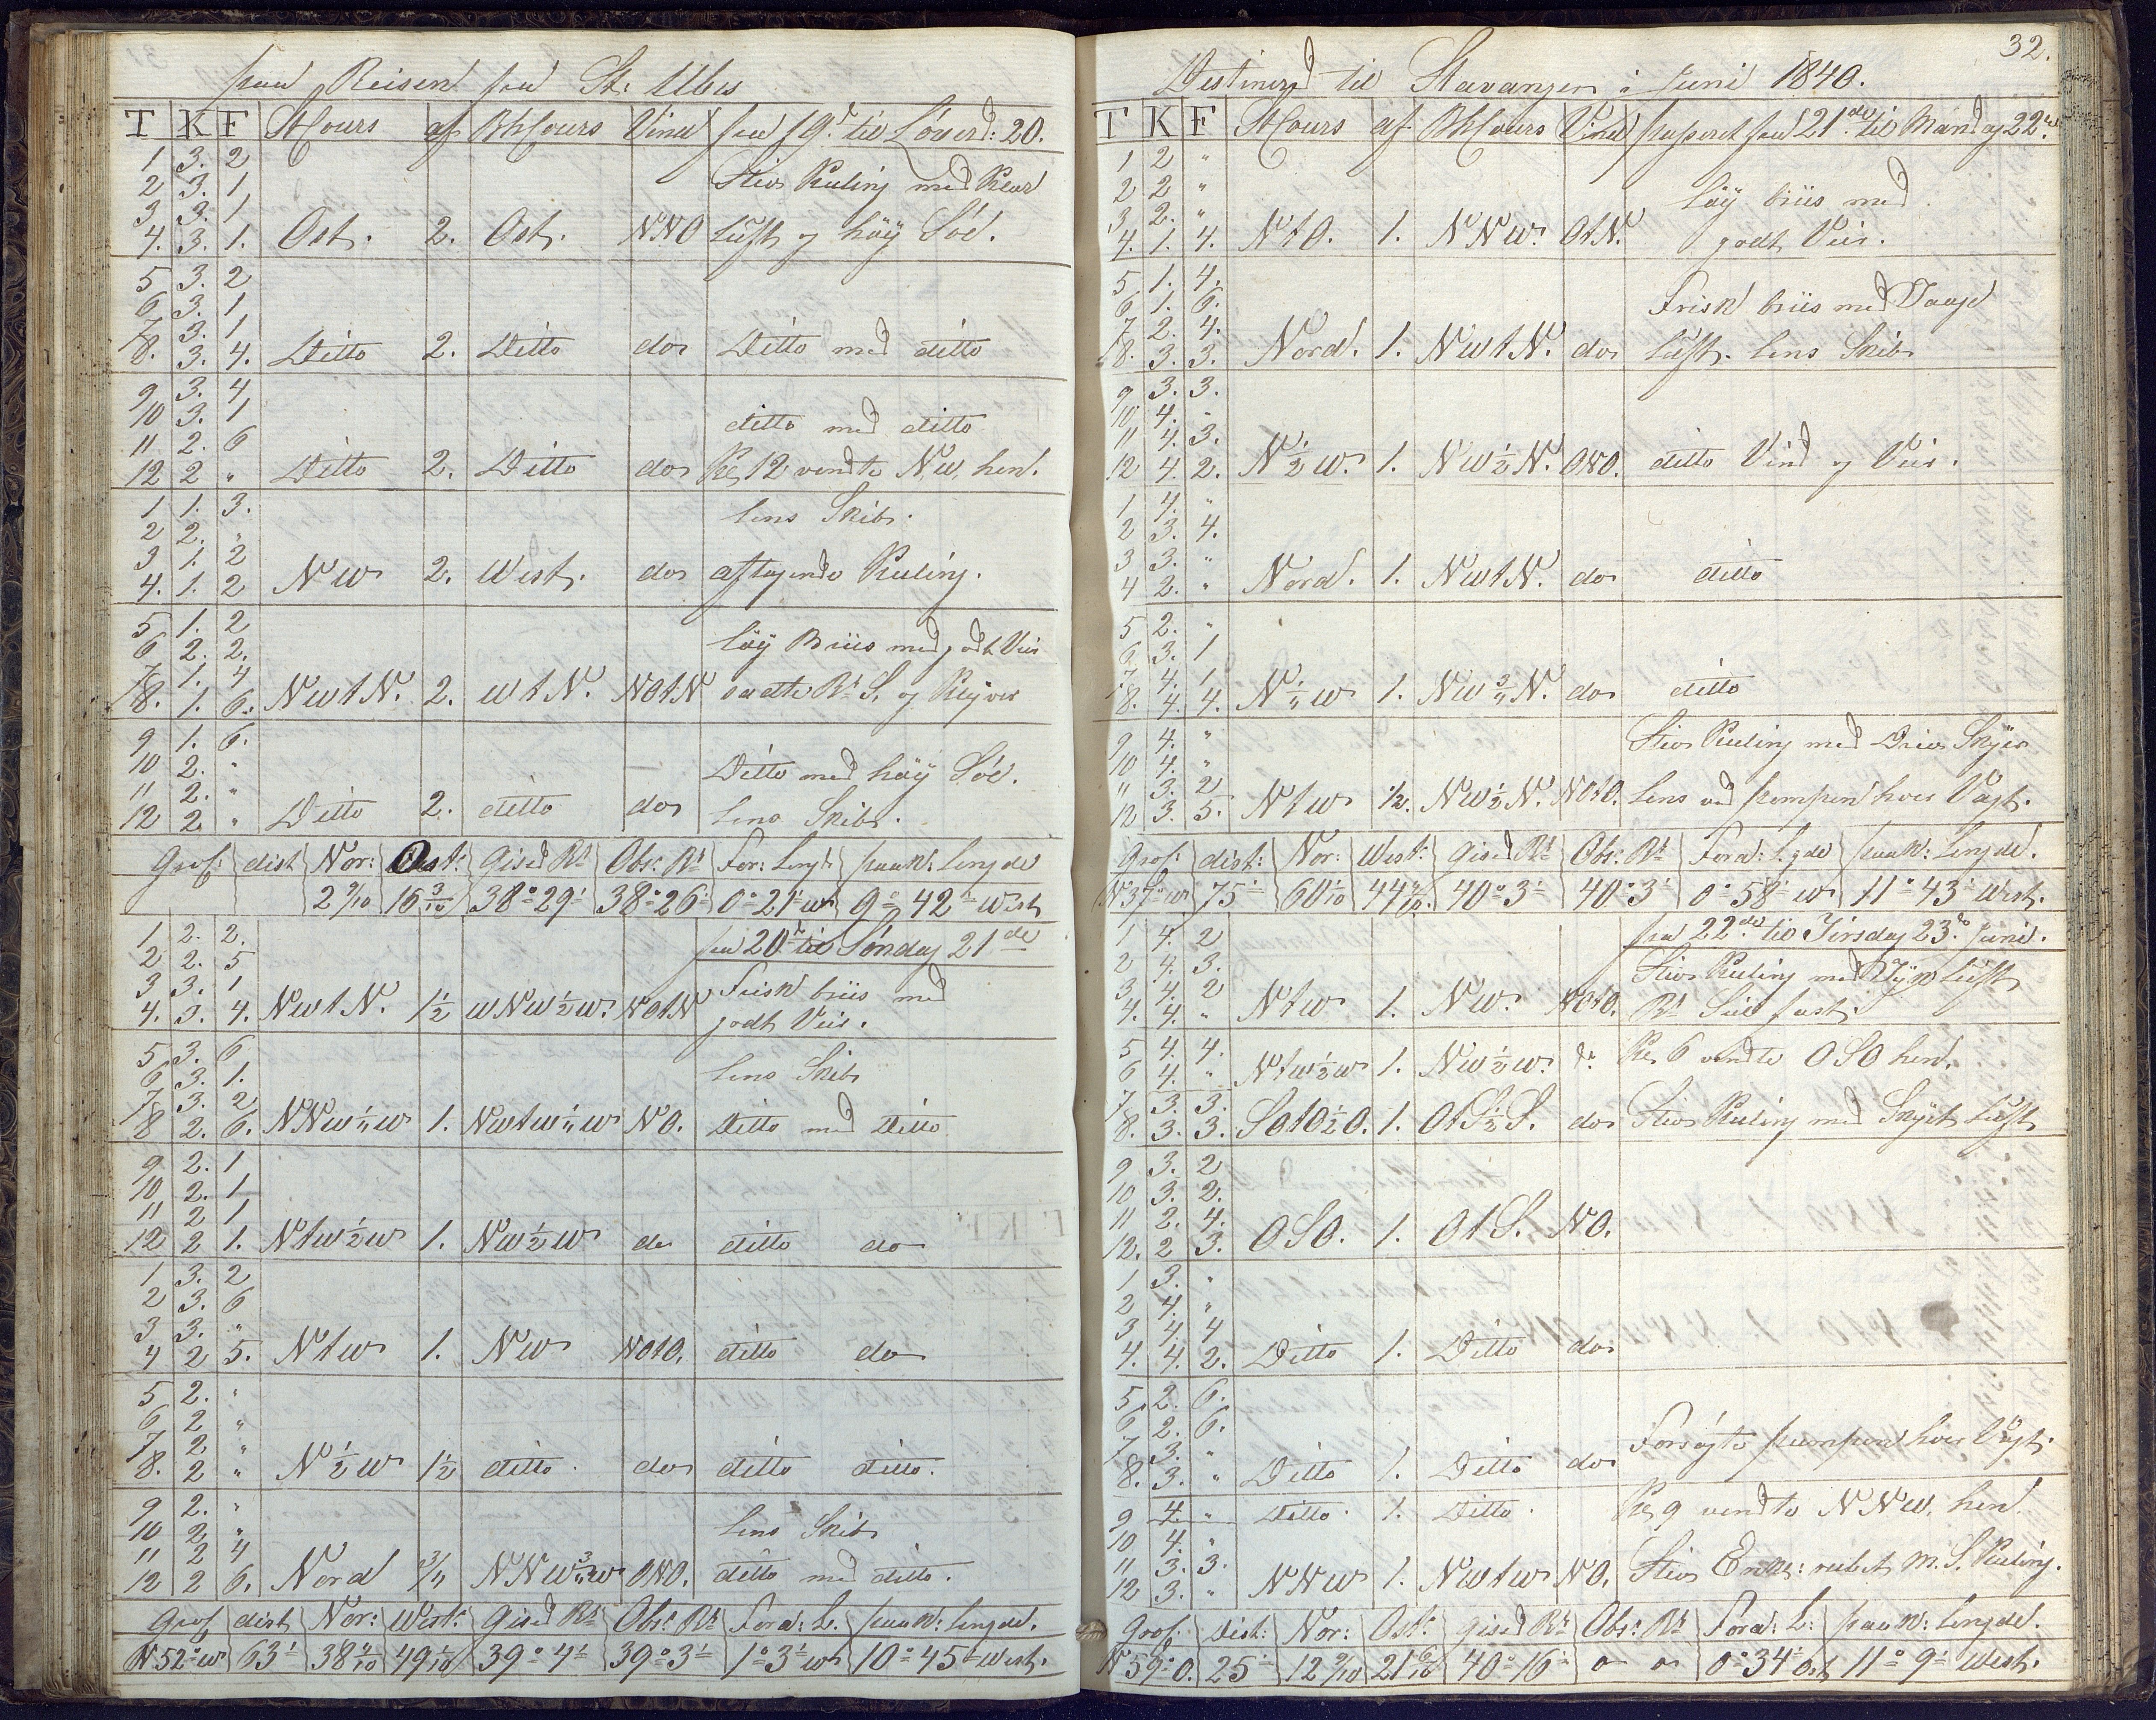 paa Reisen fra St: Ubes
T K F StCours af BhCours Vind fra 19d til Löverd: 20.
1 3. 2
2 3. 1 Stiv Kuling med Klar
3 3. 1
4. 3. 1. Ost. 2. Ost. NNO Luft og höy Söe.
5 3. 2
6 3. 1
7 3. 1
8. 3. 4. Ditto 2. Ditto do Ditto med ditto
9 3. 4
10 3. 1 ditto med ditto
11 2. 6
12 2 " Ditto 2. Ditto do Kl 12 vendte N.W. hen.
1 1. 3. lens Skib.
2 2. "
3 1. 2
4. 1. 2 NW 2. West. do aftagende Kuling.
5 1. 2
6 2. 2. löy Briis med godt Veir
7 1. 4
8. 1. 6. NWtN. 2. WtN. NOtN satte Br. S. og Klyver
9 1. 6.
10 2. " Ditto med höy Söe.
11 2. "
12 2 " Ditto 2. ditto do lens Skib.
Gros: dist Nor: Ost: Gised Bd Obs: Bd For: Lengd paak: Lengde
2 9/10 16 3/10 38°29' 38°26' 0°21' W 9°42' West
1 2. 2. fra 20d til Söndag 21de
2 2. 5
3 3. 1 Frisk briis med
4. 3. 4. NWtN. 1½ WNW½W. NOtN godt Veir.
5 3. 6 lens Skib
6 3. 1.
7 3. 2
8 2. 6. NNW¼W 1. NWtW¼W NO. ditto med ditto
9 2. 1
10 2. 1
11 2 1
12 2 1. NtW½W 1. NW½W do ditto do
1 3. 2
2 3. 6
3 3. "
4 2 5. NtW 1. NW NOtO. ditto do
5 2. "
6 2 "
7 2 "
8. 2 " N½W 1½ ditto. do ditto ditto.
9 2. "
10 2 " lens Skib
11 2 4
12 2 6. Nord ¾ NNW¾W ONO. ditto med ditto.
Gros dist Nor: West: Gised Bd Obs: Bd Ford: L. paak: Lengde.
N52°W 63' 38 4/10 49 1/10 39°4' 39°3' 1°3' W 10°45' West.
32.
Destinered til Stavanger i Juni 1840.
T K F StCours af BhCours Vind passeret fra 21de til Mandag 22de
1 2 "
2 2 " löy briis med
3 2. "
4. 1. 4. NtO. 1. NNW. OtN. godt Veir.
5 1. 4.
6 1. 6. Frisk briis med Taaget
7 2. 4.
8. 3. 3. Nord. 1. NWtN. do Luft. lens Skib
9 3. 3.
10 4. "
11 4. 3.
12 4. 2. N½W. 1. NW½N. ONO. ditto Vind og Veir.
1 4. "
2 3. 4.
3 3. "
4 2. " Nord. 1. NWtN. do ditto
5 2. "
6 3. 1
7 4. 1
8. 4. 4. N¼W 1. NW¾N. do ditto
9 4. " Stiv Kuling med Driv Skyer
10 4. "
11 3. 2
12 3. 5. NtW ½. NW½N. NOtO. lens ved pumpen hver Vagt.
Gros: dist: Nor: West: Gised Bd Obs: Bd Ford: Lgde paak: Lengde.
N37°W 75' 60 1/10 44 4/10. 40°3' 40°3' 0°58' W 11°43' West.
1 4. 2 fra 22de til Tirsdag 23de Juni.
2 4. 3. Stiv Kuling med Tyk Luft
3 4. 2
4. 4. " NtW 1. NW. NOtO. Bd Seil fast.
5 4. 4. Kl 6 vendte OSO hen.
6 4. " NtW½W 1. NW½W. do
7 3. 3.
8. 3. 3. SOtO½O. 1. OtS½S. do Stiv Kuling med Skyet Luft
9 3. 2
10 3. 2.
11 2. 4.
12. 2 3. OSO. 1. OtS. NO.
1 3. "
2 4. "
3 4. 4
4. 4. 2. Ditto 1. Ditto do
5 2. 6.
6 2. 6.
7 3. " Forsögte pumpen hver Vagt.
8. 3. " Ditto 1. Ditto do
9 4. " Ditto. 1. Ditto. Kl 9 vendte NNW. hen.
10 4. "
11 3. 3.
12 3. " NNW 1. NWtW NO. Stiv Enk: rebet M. S. Kuling.
Gros: Dist: Nor: Ost: Gised Bd Obs: Bd Ford: L: paak: Lengde.
N59°O. 25' 12 9/10 21 6/10 40°16' o o 0°34' Ost 11°9' West.